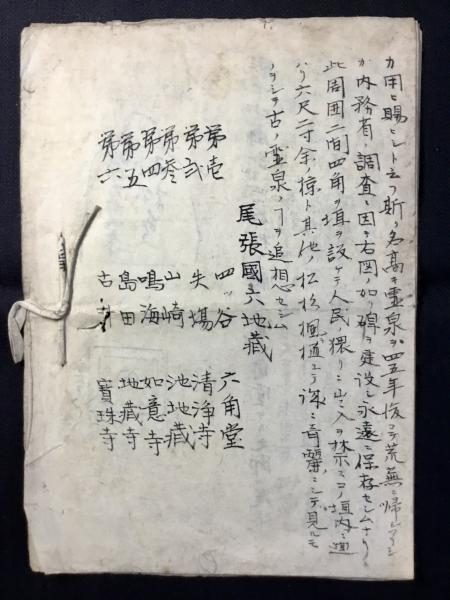 カ用ヒ賜ヒシト云フ斯ク名高キ霊泉ヲ四五年後ニテ荒無ニ帰シアリシ
カ内務省ノ調査ニ因テ右図ノ如ク碑ヲ建設シ永遠ニ保存セシムナリ
此周囲二間四角ノ垣ヲ設ケテ人民ノ猥リニ出入ヲ禁スコノ垣内ニ
六尺二寸余ノ其他ノ松杉楓植エテ誠ニ奇麗ニシテ見ルモ
ノヲシテ古ノ霊泉ノヿヲ追想セシム
尾張國六地藏
第壱 四ッ谷 六角堂
第弐 矢場 清浄寺
第参 山崎 池地藏
第四 鳴海 如意寺
第五 島田 地藏寺
第六 古 寳珠寺